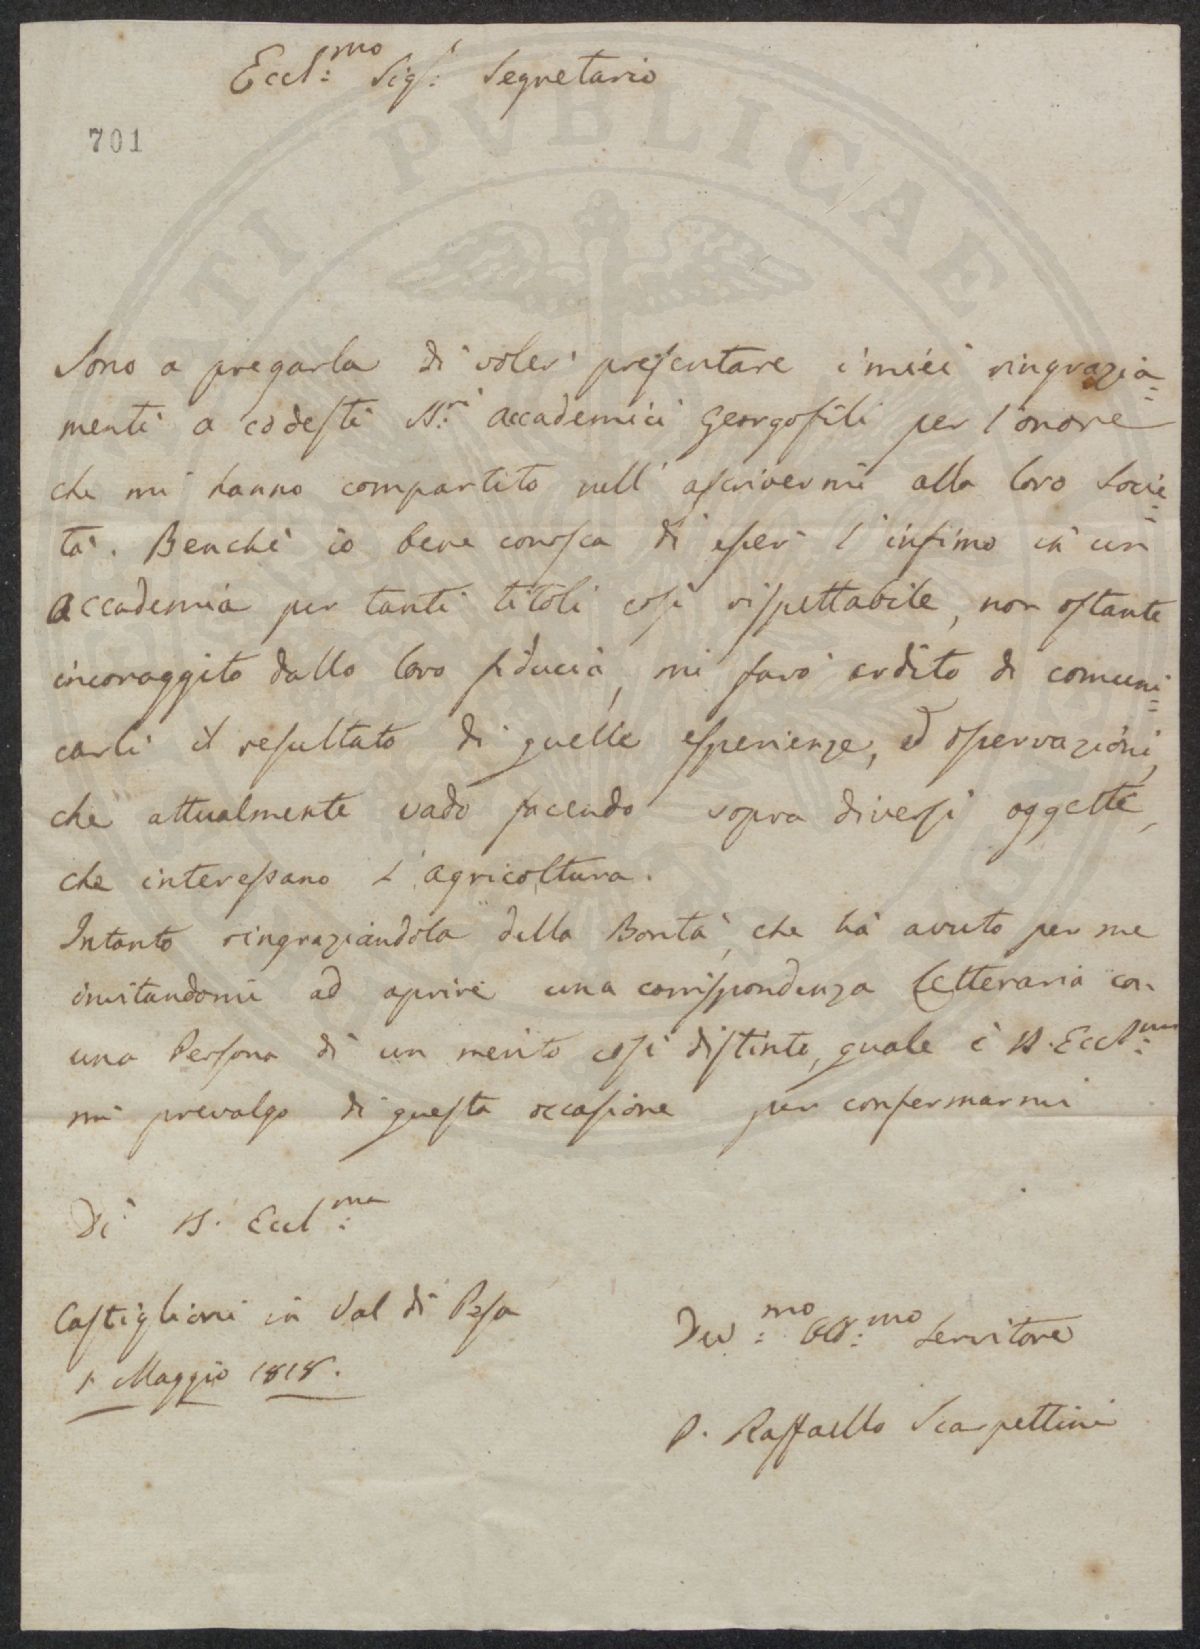 Eccl:mo Sigr: Segretario
701
Sono a pregarla di voler presentare i miei ringrazia=
menti a codesti SS:ri Accademici Georgofili per l'onore
che mi hanno compartito nell'ascrivermi alla loro Socie=
tà. Benchè io bene conosca di esser l'infimo in un
Accademia per tanti titoli così rispettabile, non ostante
incoraggito dallo loro fiducia, mi farò ardito di comuni=
carli il resultato di quelle esperienze, ed osservazioni,
che attualmente vado facendo sopra diversi oggetti,
che interessano l'agricoltura.
Intanto ringraziandola della Bontà, che ha avuto per me
invitandomi ad aprire una corrispondenza letteraria con
una Persona di un merito così distinto, quale è V.S. Eccl:ma
mi prevalgo di questa occasione per confermarmi
Di V.S. Eccl:ma
Castiglioni in Val di Pesa
1 Maggio 1818.
Dev:mo Obb:mo Servitore
P. Raffaello Scarpettini
PUBLICAE